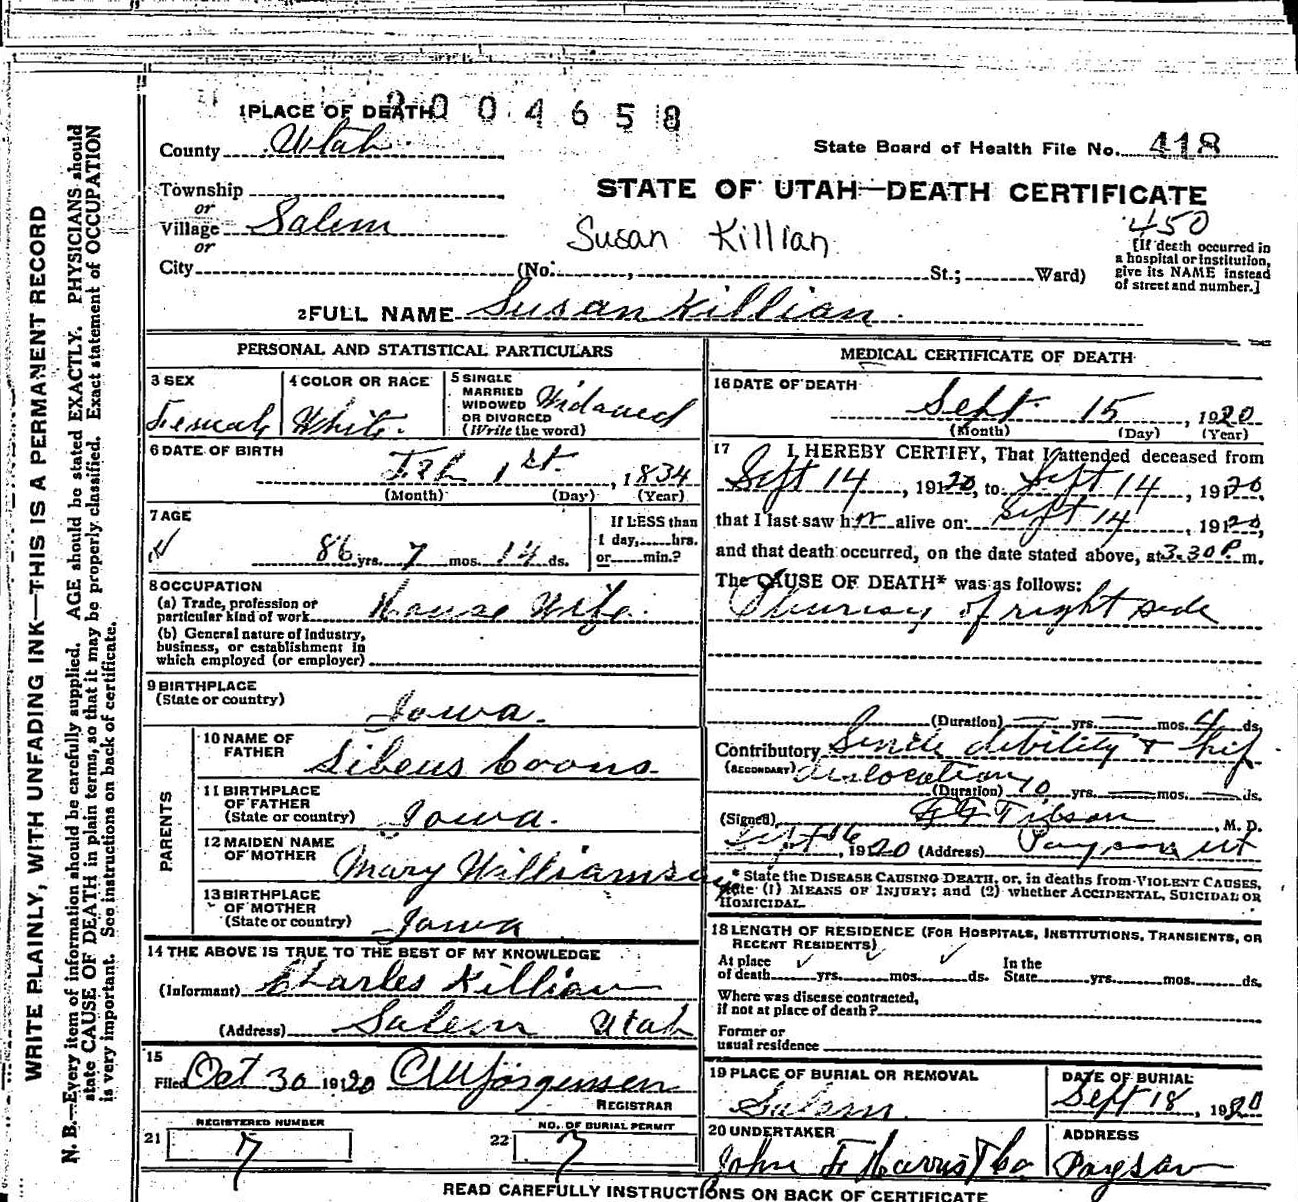 2004658
1 PLACE OF DEATH
County Utah
State Board of Health File No. 418
Township
or
Village Salem
or
City (No. , St.; Ward)
STATE OF UTAH—DEATH CERTIFICATE
450
Susan Killian
[If death occurred in
a hospital or institution,
give its NAME instead
of street and number.]
2 FULL NAME Susan Killian
PERSONAL AND STATISTICAL PARTICULARS
3 SEX
Female
4 COLOR OR RACE
White.
5 SINGLE
MARRIED
WIDOWED
OR DIVORCED
(Write the word)
Widowed
6 DATE OF BIRTH
Feb 1st, 1834
(Month) (Day) (Year)
7 AGE
86 yrs. 7 mos. 14 ds.
If LESS than
1 day, hrs.
or min.?
8 OCCUPATION
(a) Trade, profession or
particular kind of work House Wife.
(b) General nature of industry,
business, or establishment in
which employed (or employer)
9 BIRTHPLACE
(State or country)
Iowa.
PARENTS
10 NAME OF
FATHER
Sibeus Coons
11 BIRTHPLACE
OF FATHER
(State or country)
Iowa.
12 MAIDEN NAME
OF MOTHER
Mary Williamson
13 BIRTHPLACE
OF MOTHER
(State or country)
Iowa
14 THE ABOVE IS TRUE TO THE BEST OF MY KNOWLEDGE
(Informant) Charles Killian
(Address) Salem Utah
15
Filed Oct 30 1920 CM Jorgensen
REGISTRAR
21 REGISTERED NUMBER
7
22 NO. OF BURIAL PERMIT
7
MEDICAL CERTIFICATE OF DEATH
16 DATE OF DEATH
Sept. 15, 1920
(Month) (Day) (Year)
17 I HEREBY CERTIFY, That I attended deceased from
Sept 14, 1920, to Sept 14, 1920,
that I last saw her alive on Sept 14, 1920,
and that death occurred, on the date stated above, at 3.30 P m.
The CAUSE OF DEATH* was as follows:
Plurisy of right side
(Duration) yrs. mos. 4 ds.
Contributory Senile debility & hip
(SECONDARY) dislocation
(Duration) 10 yrs. mos. ds.
(Signed) Tibson, M. D.
Sept 16, 1920 (Address) Payson Ut
* State the DISEASE CAUSING DEATH, or, in deaths from VIOLENT CAUSES,
state (1) MEANS OF INJURY; and (2) whether ACCIDENTAL, SUICIDAL OR
HOMICIDAL.
18 LENGTH OF RESIDENCE (FOR HOSPITALS, INSTITUTIONS, TRANSIENTS, OR
RECENT RESIDENTS)
At place
of death yrs. mos. ds.
In the
State yrs. mos. ds.
Where was disease contracted,
if not at place of death?
Former or
usual residence
19 PLACE OF BURIAL OR REMOVAL
Salem.
DATE OF BURIAL
Sept 18, 1920
20 UNDERTAKER
John F Harris & Co
ADDRESS
Payson
READ CAREFULLY INSTRUCTIONS ON BACK OF CERTIFICATE
WRITE PLAINLY, WITH UNFADING INK—THIS IS A PERMANENT RECORD
N. B.—Every item of information should be carefully supplied. AGE should be stated EXACTLY. PHYSICIANS should
state CAUSE OF DEATH in plain terms, so that it may be properly classified. Exact statement of OCCUPATION
is very important. See instructions on back of certificate.